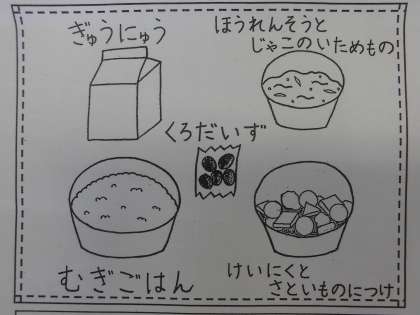 ぎゅうにゅう
ほうれんそうと
じゃこのいためもの
くろだいず
むぎごはん
けいにくと
さといものにつけ